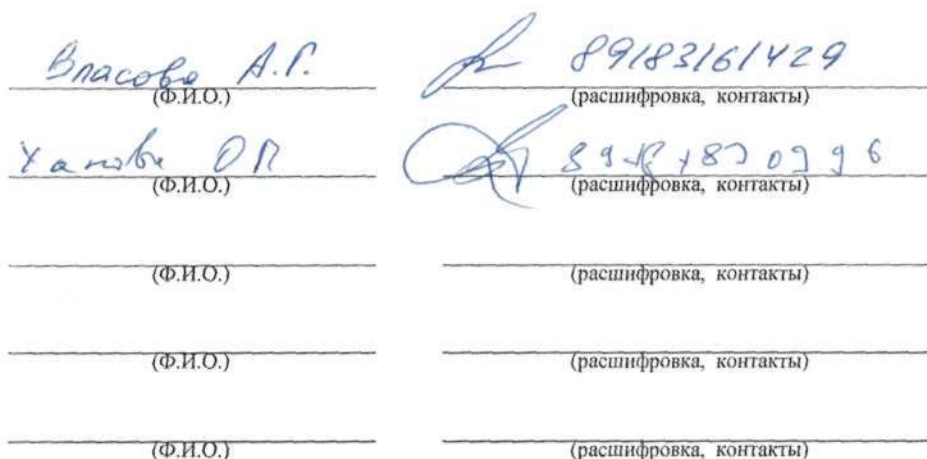 Власова А.Г. 89183161429
(Ф.И.О.) (расшифровка, контакты)
О П
(Ф.И.О.) (расшифровка, контакты)
(Ф.И.О.) (расшифровка, контакты)
(Ф.И.О.) (расшифровка, контакты)
(Ф.И.О.) (расшифровка, контакты)